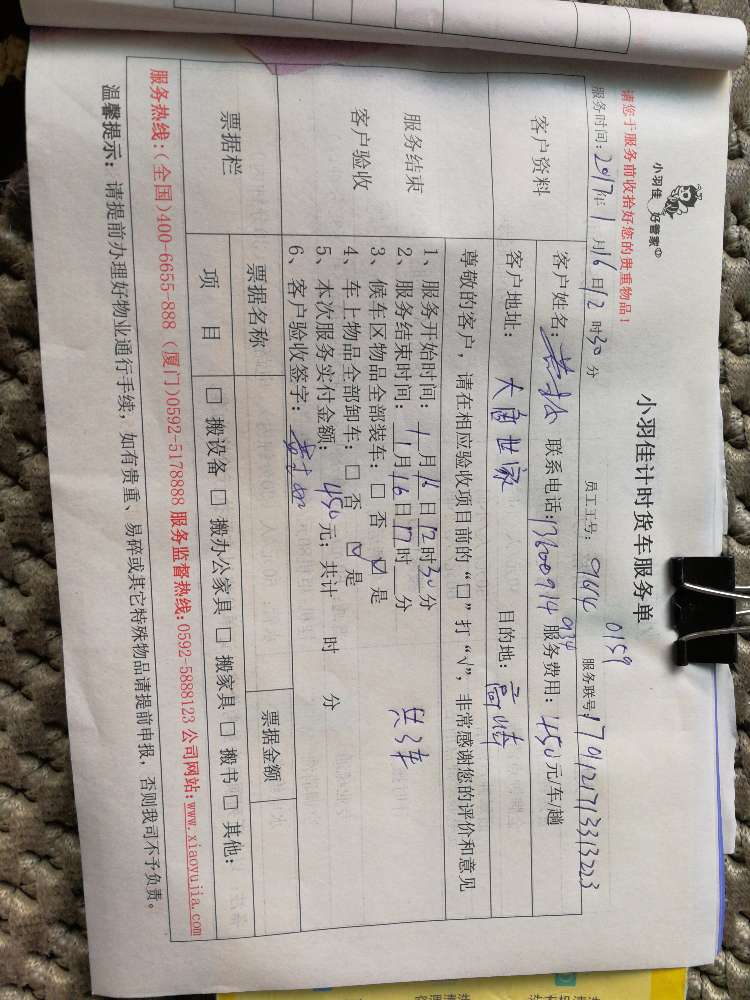 小羽佳 好管家
小羽佳计时货车服务单
请您于服务前收拾好您的贵重物品!
服务时间: 2017年 1 月16 日12 时30 分 员工工号: 0159 服务联号:
客户资料
客户姓名: 联系电话: 服务费用: 450元/车/趟
客户地址: 大唐世家 目的地: 高崎
尊敬的客户,请在相应验收项目前的“□”打“√”,非常感谢您的评价和意见
服务结束
客户验收
1、服务开始时间: 1 月16 日12 时30 分
2、服务结束时间: 1 月16 日17 时 分
3、候车区物品全部装车: □ 否 ☑ 是
4、车上物品全部卸车: □ 否 ☑ 是
5、本次服务实付金额: 450 元; 共计 时 分
6、客户验收签字:
共3车
票据栏
票据名称 票据金额
项 目 □ 搬设备 □ 搬办公家具 □ 搬家具 □ 搬书 □ 其他:
服务热线:(全国)400-6655-888 (厦门)0592-5178888 服务监督热线:0592-5888123 公司网站:www.xiaoyujia.com
温馨提示: 请提前办理好物业通行手续,如有贵重、易碎或其它特殊物品请提前申报,否则我司不予负责。